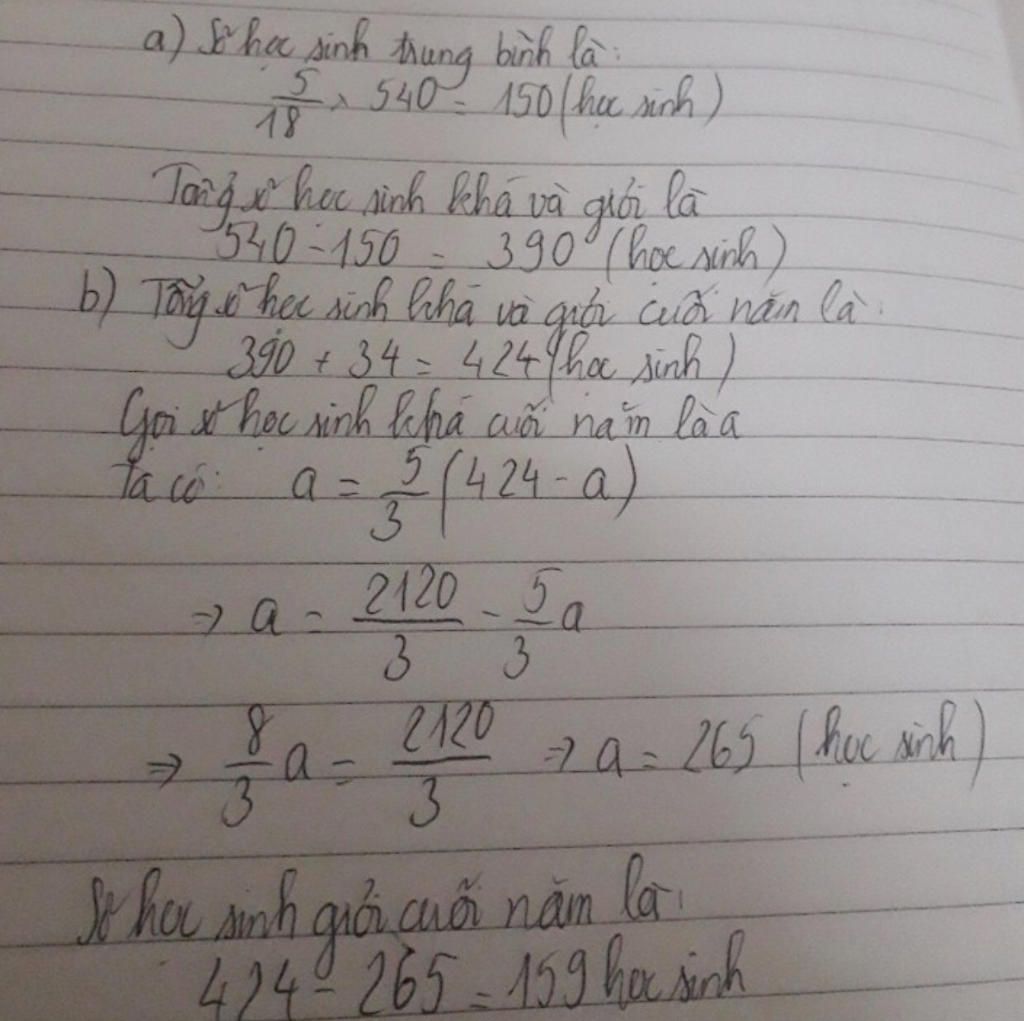 a) Số học sinh trung bình là:
5/18 × 540 = 150 (học sinh)
Tổng số học sinh khá và giỏi là
540 - 150 = 390 (học sinh)
b) Tổng số học sinh khá và giỏi cuối năm là:
390 + 34 = 424 (học sinh)
Gọi số học sinh khá cuối năm là a
Ta có: a = 5/3 (424 - a)
⇒ a = 2120/3 - 5/3 a
⇒ 8/3 a = 2120/3 ⇒ a = 265 (học sinh)
Số học sinh giỏi cuối năm là:
424 - 265 = 159 học sinh